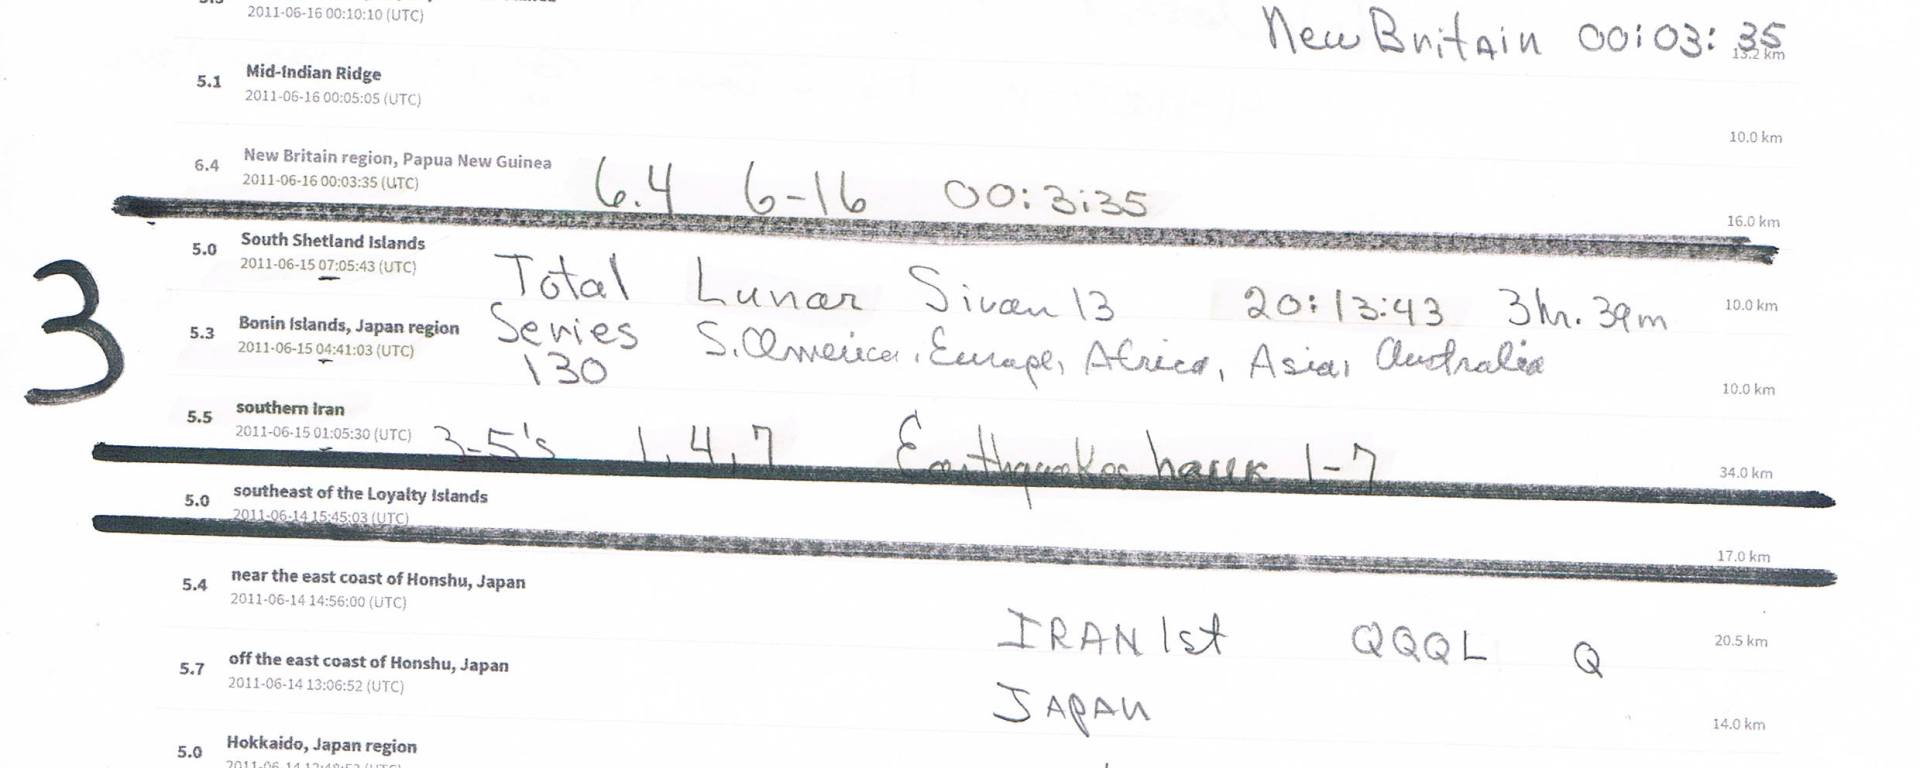 2011-06-16 00:10:10 (UTC)
New Britain 00:03:35
13.2 km
5.1 Mid-Indian Ridge
2011-06-16 00:05:05 (UTC)
10.0 km
6.4 New Britain region, Papua New Guinea
2011-06-16 00:03:35 (UTC)
6.4 6-16 00:3:35
16.0 km
5.0 South Shetland Islands
2011-06-15 07:05:43 (UTC)
Total Lunar Sivan 13 20:13:43 3hr. 39m
10.0 km
3
5.3 Bonin Islands, Japan region
2011-06-15 04:41:03 (UTC)
Series S. America, Europe, Africa, Asia, Australia
130
10.0 km
5.5 southern Iran
2011-06-15 01:05:30 (UTC)
3-5's 1, 4, 7 Earthquakes hawk 1-7
34.0 km
5.0 southeast of the Loyalty Islands
2011-06-14 15:45:03 (UTC)
17.0 km
5.4 near the east coast of Honshu, Japan
2011-06-14 14:56:00 (UTC)
IRAN 1st QQQL Q
20.5 km
5.7 off the east coast of Honshu, Japan
2011-06-14 13:06:52 (UTC)
JAPAN
14.0 km
5.0 Hokkaido, Japan region